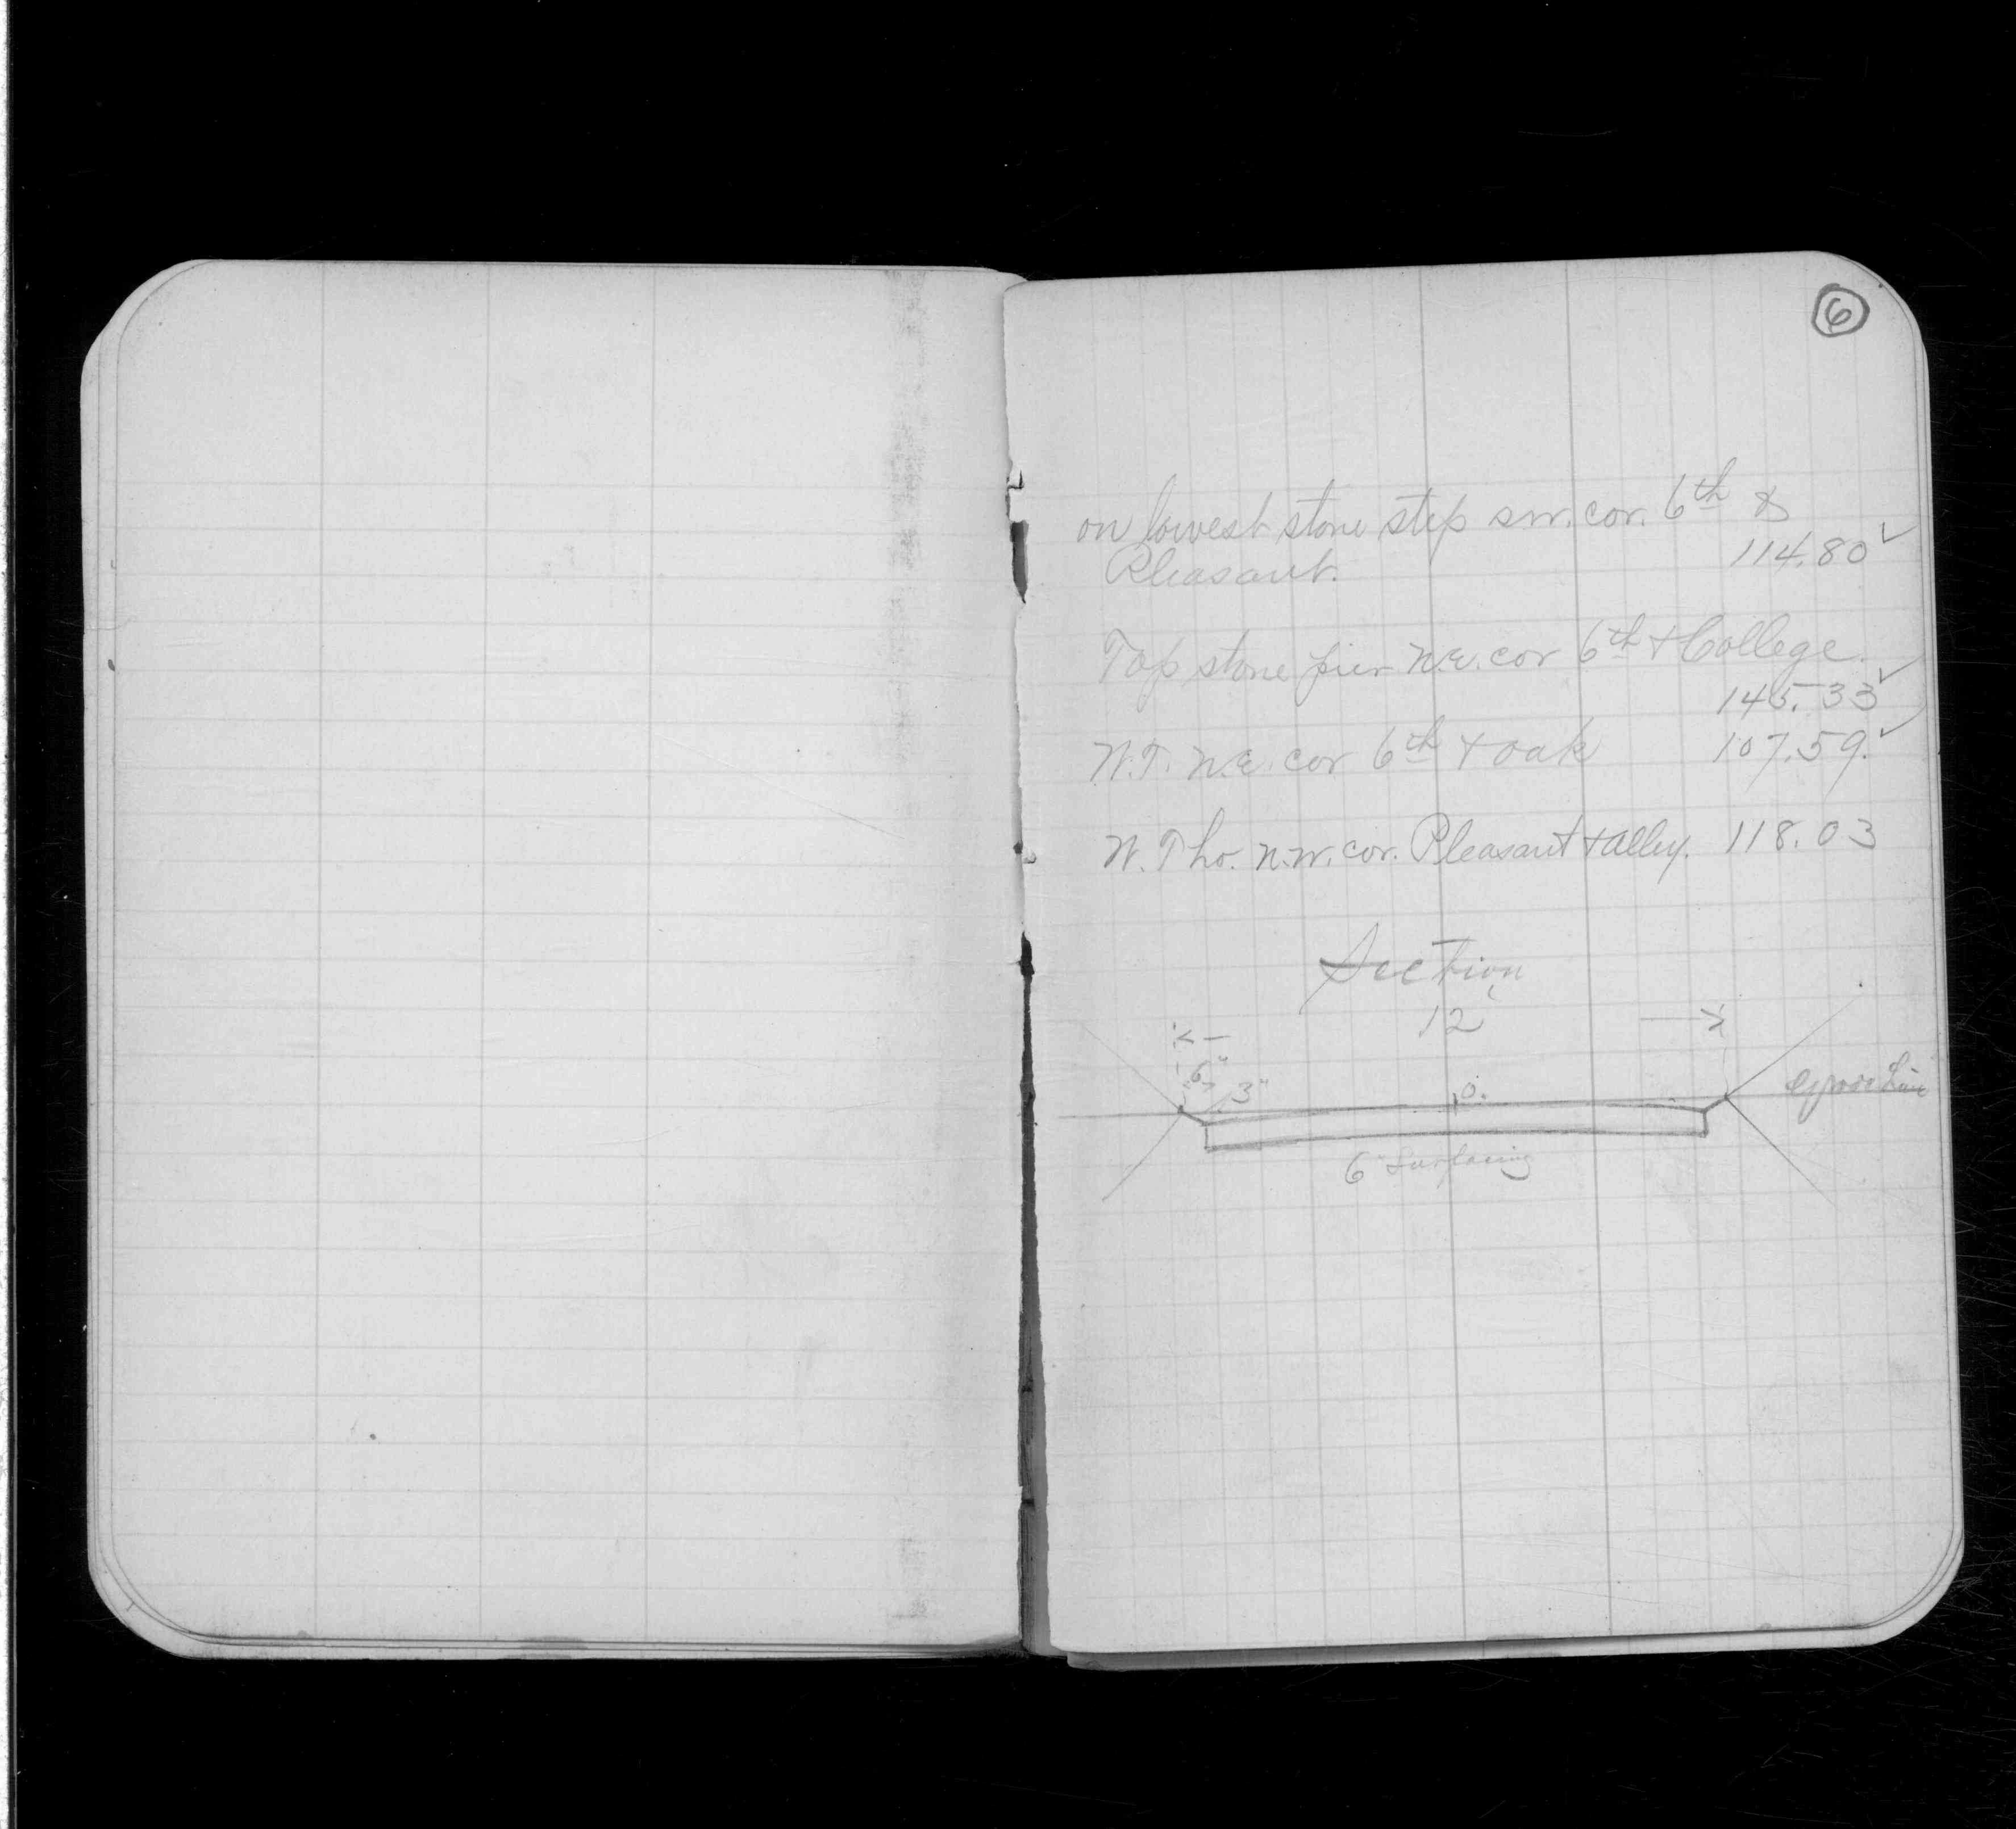 6
on lowest stone step s.w. cor. 6th &
Pleasant. 114.80 ✓
Top stone pier N.E. cor 6th + College.
145.33 ✓
W.T. N.E. cor 6th + oak 107.59. ✓
W.T ho. n.w. cor. Pleasant + alley. 118.03
Section
12'
6" 3" 0.
Grade Line
6" Surfacing